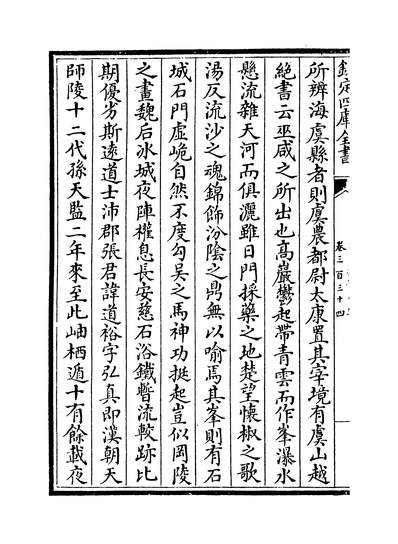 欽定四庫全書
卷三百三十四
所辨海虞縣者則虞農都尉太康置其宰境有虞山越
絶書云巫咸之所出也高巖鬱起帶青雲而作峯瀑水
懸流雜天河而俱灑雖日門採藥之地椘望懷椒之歌
湯反流沙之魂錦飾汾隂之鼎無以喻焉其峯則有石
城石門虚峗自然不度勾吴之馬神功挺起豈似岡陵
之畫魏后冰城夜陣權息長安慈石浴鐵暫流較跡比
期優劣斯逺道士沛郡張君諱道裕字弘真即漢朝天
師陵十二代孫天監二年來至此岫栖遁十有餘載夜